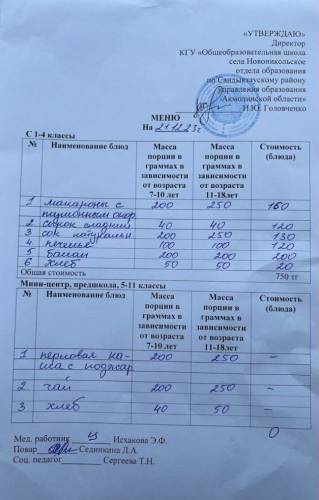 «УТВЕРЖДАЮ»
Директор
КГУ «Общеобразовательная школа
села Новоникольское
отдела образования
по Сандыктаускому району
Управления образования
Акмолинской области»
И.Ю. Головченко
МЕНЮ
На 21.12.23г
С 1-4 классы
№ Наименование блюд Масса порции в граммах в зависимости от возраста 7-10 лет Масса порции в граммах в зависимости от возраста 11-18лет Стоимость (блюда)
1 макароны с 200 250 160
2 сырок сладкий 40 40 120
3 сок натуральн. 200 250 130
4. печенье 100 100 120
5 банан 200 200 200
6 хлеб 50 50 20
Общая стоимость 750 тг
Мини-центр, предшкола, 5-11 классы
№ Наименование блюд Масса порции в граммах в зависимости от возраста 7-10 лет Масса порции в граммах в зависимости от возраста 11-18лет Стоимость (блюда)
1 перловая ка- 200 250 –
ша с поджар
2. чай 200 250 –
3. хлеб 40 50 –
0
Мед. работник Исхакова Э.Ф.
Повар Сединкина Л.А.
Соц. педагог Сергеева Т.Н.